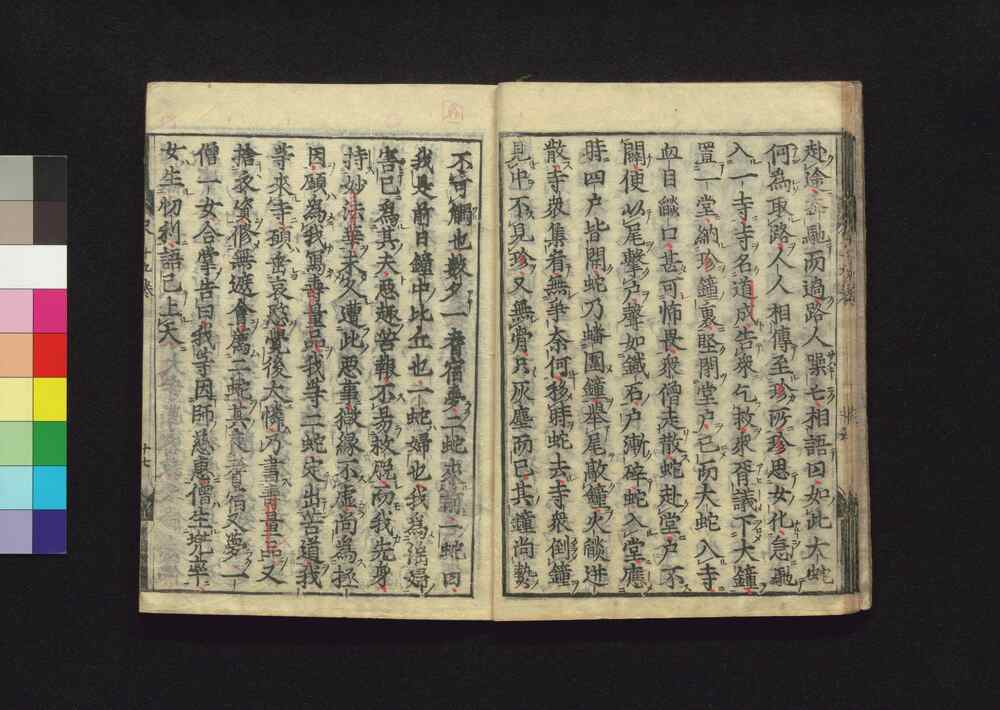 赴途奔馳而過路人躁亡相語曰如此大蛇
何為取路人人相傳至珍所珍思女化急馳
入一寺寺名道成告衆乞救衆胥議下大鐘
置一堂納珍鐘裏堅閉堂戸已而大蛇入寺
血目燄口甚可怖畏衆僧走散蛇赴堂戸不
關便以尾擊戸聲如鐵石戸漸碎蛇入堂應
時四戸皆開蛇乃蟠圍鐘舉尾敲鐘火燄迸
散寺衆集看無爭奈何移時蛇去寺衆倒鐘
見中不見珍又無骨只灰塵而已其鐘尚熱
不可觸也數夕一耆宿夢二蛇來前一蛇曰
我是前日鐘中比丘也一蛇婦也我為淫婦
害已爲其夫惡趣苦報不易救脱而我先身
持妙法華未久遭此惡事微緣不虚尚為拯
因願為我寫壽量品我等二蛇定出苦道我
等來寺願垂哀愍覺後大憐乃書壽量品又
捨衣資修無遮會薦二蛇其夜耆宿又夢一
僧一女合掌告曰我等因師慈惠僧生兜率
女生忉利語已上天